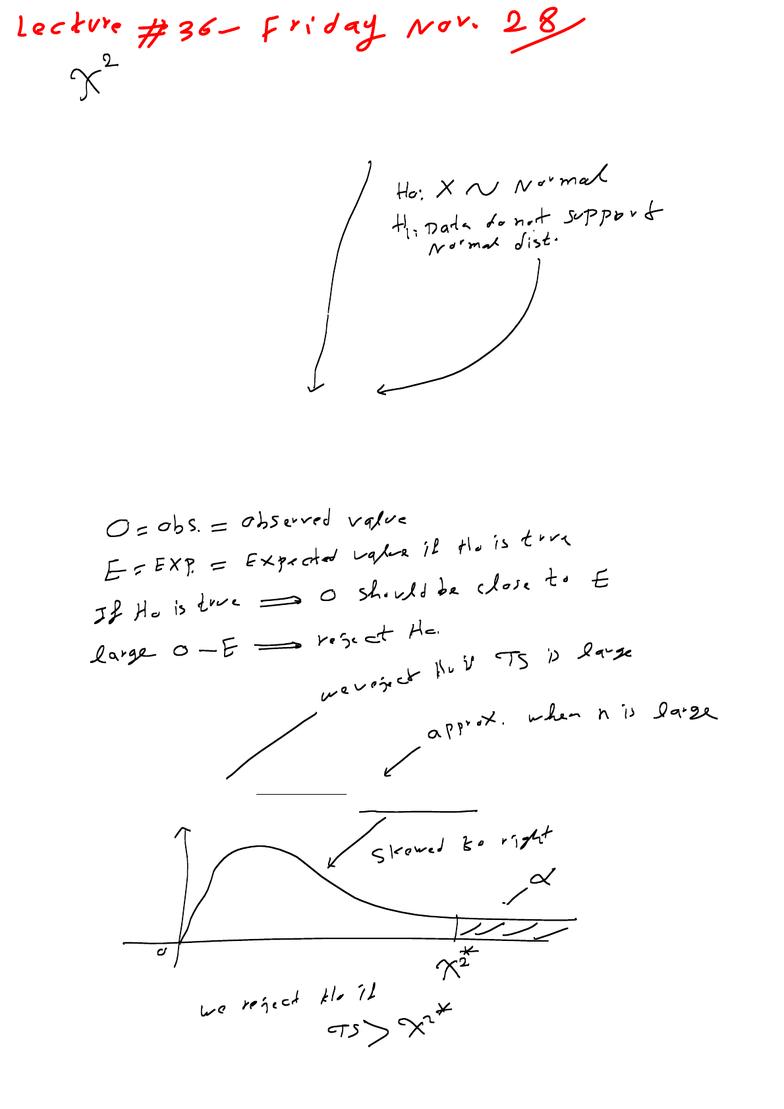 Lecture # 36- Friday Nov. 28
χ²
Ho: X ~ Normal
H1: Data do not support
Normal dist.
O = obs. = observed value
E = EXP. = Expected value if Ho is true
If Ho is true ⟹ O should be close to E
large O - E ⟹ reject Ho.
we reject Ho if TS is large
approx. when n is large
Skewed to right
α
0
χ²*
we reject Ho if
TS > χ²*